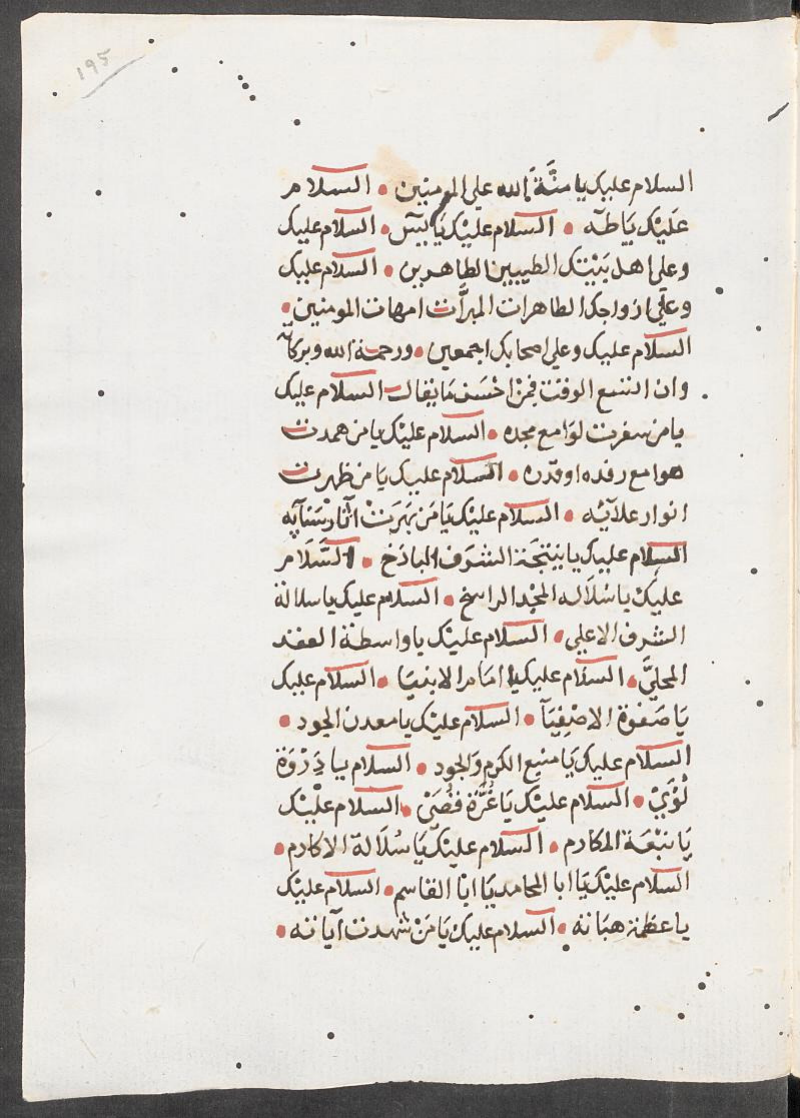 ١٩٥
السلام عليك يا منَّةَ الله علي المومنين • السلام
عَليْك يَا طـٰه • السلام عليْك يَا يسٓ • السلام عليك
وعلي اهل بَيْتك الطيبين الطاهرين • السلام عليك
وعلَي ازواجك الطاهرات المبرَّات امهات المومنين •
السلام عليك وعلي اصحابك اجمعين • ورحمة الله وبركاته
وان اتسع الوقت فمِنْ احْسَن مَا يقال السلام عليك
يا من سفرت لوَامع مجده • السلام عليْك يا من همدت
هوامع رفده او قدره • السلام عليك يَا من ظهرت
انوار علائه • السلام عليْك يَا مَن بَهَرَتْ اثار سَنآيه
السلام عليك يا نتيجَة الشرَف الباذخ • السَّلام
عليكْ يا سُلَاله المجْد الراسخ • السلام عليك يا سلالة
الشرف الاعلي • السلام عليْك يا واسطة العقد
المحليَّ • السلام عليك يا امَام الانبيَا • السلام عليك
يَا صَفوة الاصْفِيَآ • السلام عليْك يا معدن الجود •
السلام عليك يَا منبع الكرم وَالجود • السلام يا ذِرْوَة
لُؤَيْ • السلام عليْك يَا غُرَّة قُصَيْ • السلام علَيْك
يَا نبْعَة المكارم • السلام عليْك يَا سُلَالة الاكارم •
السلام عليْك يَا ابا المحامد يَا ابَا القاسم • السلام عليْك
يا عظمة هباته • السلام عليك يَا مَنْ شهدت آياته •